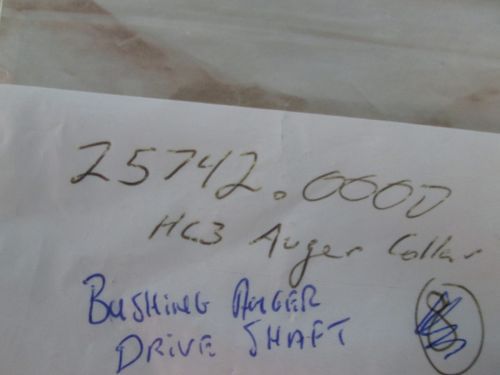 25742.0000
HC3 Auger Collar
BUSHING AUGER
DRIVE SHAFT